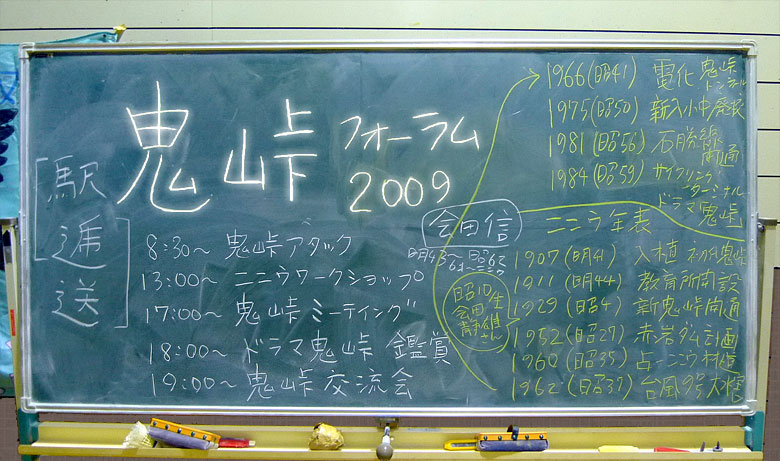 鬼峠 フォーラム
2009
[駅逓送]
8:30〜 鬼峠アタック
13:00〜 ニニウワークショップ
17:00〜 鬼峠ミーティング
18:00〜 ドラマ鬼峠 鑑賞
19:00〜 鬼峠交流会
会田信
昭10生
会田
さん
ニニウ年表
1907(明41) 入植
1911(明44) 教育所開設
1929(昭4) 新鬼峠開通
1952(昭27) 赤岩ダム計画
1960(昭35) 占〜ニニウ
1962(昭37) 台風9号大
1966(昭41) 電化 鬼峠トンネル
1975(昭50) 新入小中廃校
1981(昭56) 石勝線開通
1984(昭59) サイクリングターミナル
ドラマ鬼峠